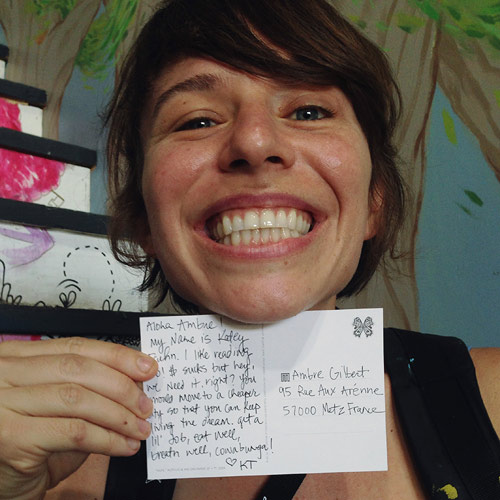 Aloha Ambre
My Name is Katey
I like reading
$ sucks but hey,
we need it, right? you
move to a cheaper
so that you can keep
living the dream. get a
lil' Job, eat well,
breath well, cowabunga!
♡ KT
Ambre Gilbert
95 Rue Aux Arénne
57000 Metz France